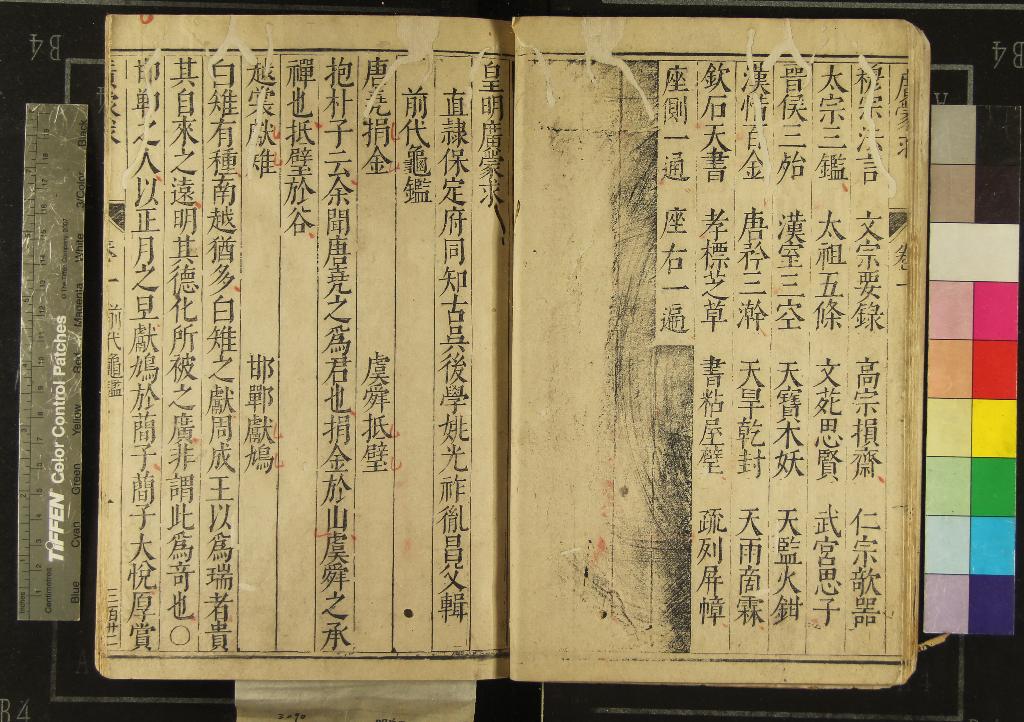 穆宗法言 文宗要錄 高宗損齋 仁宗欹器
太宗三鑑 太祖五條 文苑思賢 武宮思子
晉侯三殆 漢室三空 天寶木妖 天監火鉗
漢惜百金 唐矜三澣 天旱乾封 天雨啇霖
欽石天書 孝標芝草 書粘屋壁 疏列屏幛
座側一通 座右一遍
皇明廣蒙求
直隷保定府同知古吳後學姚光祚胤昌父輯
前代龜鑑
唐堯捐金 虞舜抵璧
抱朴子云余聞唐堯之爲君也捐金於山虞舜之承
禪也抵璧於谷
越裳獻雉 邯鄲獻鳩
白雉有種南越猶多白雉之獻周成王以爲瑞者貴
其自來之遠明其德化所被之廣非謂此爲奇也〇
邯鄲之人以正月之旦獻鳩於蕳子蕳子大悅厚賞
廣蒙求 卷一 前代龜鑑 三百廿二
TIFFEN Color Control Patches
Blue Cyan Green Yellow Red Magenta White 3/Color Black
Inches
Centimetres
B4
B4
B4